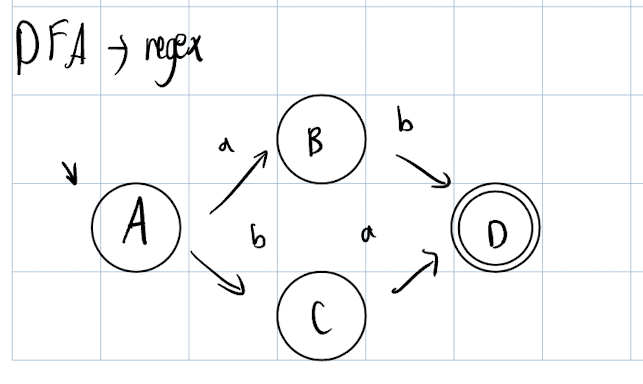 DFA → regex
a
B
b
A
b
a
D
C